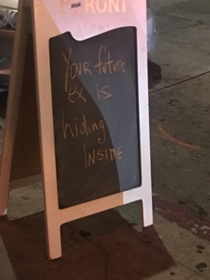 FRONT
Your future
ex is
hiding
INSIDE